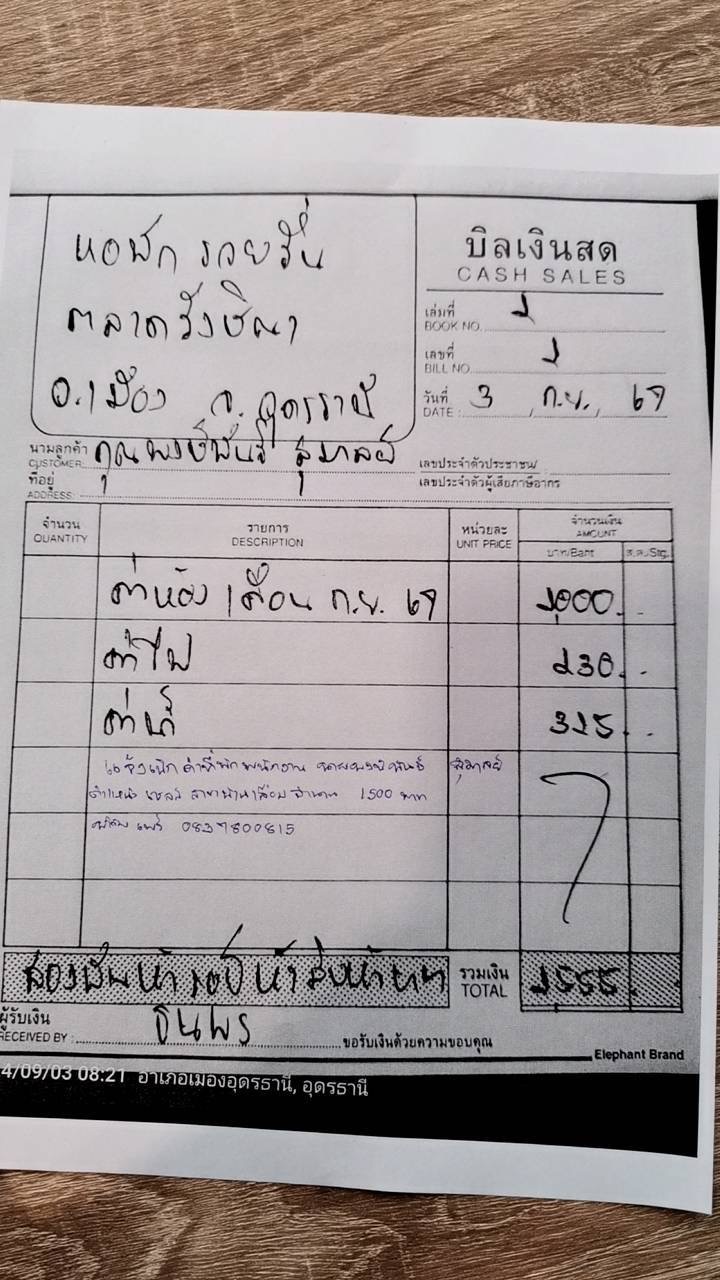 หอพัก รวยรื่น
ตลาดรังษิณา
อ.เมือง จ.อุดรธานี
บิลเงินสด
CASH SALES
เล่มที่
BOOK NO. 2
เลขที่
BILL NO. 2
วันที่
DATE : 3 ก.ย. 67
นามลูกค้า
CUSTOMER คุณพงษ์พันธ์ สุมาลย์
ที่อยู่
ADDRESS:
เลขประจำตัวประชาชน/
เลขประจำตัวผู้เสียภาษีอากร
จำนวน
QUANTITY
รายการ
DESCRIPTION
หน่วยละ
UNIT PRICE
จำนวนเงิน
AMOUNT
บาท/Baht
ส.ต./Stg.
ค่าห้อง เดือน ก.ย. 67 2,000.-
ค่าไฟ 230.-
ค่าน้ำ 325.-
ค่าที่พัก พนักงาน สุมาลย์
ตำแหน่ง เซลล์ สาขาบ้านเลื่อม จำนวน 1500 บาท
0837800815
สองพันห้าร้อยห้าสิบห้าบาท
รวมเงิน
TOTAL 2,555.-
ผู้รับเงิน
RECEIVED BY : ธนพร
ขอรับเงินด้วยความขอบคุณ
Elephant Brand
4/09/03 08:21 อำเภอเมืองอุดรธานี, อุดรธานี